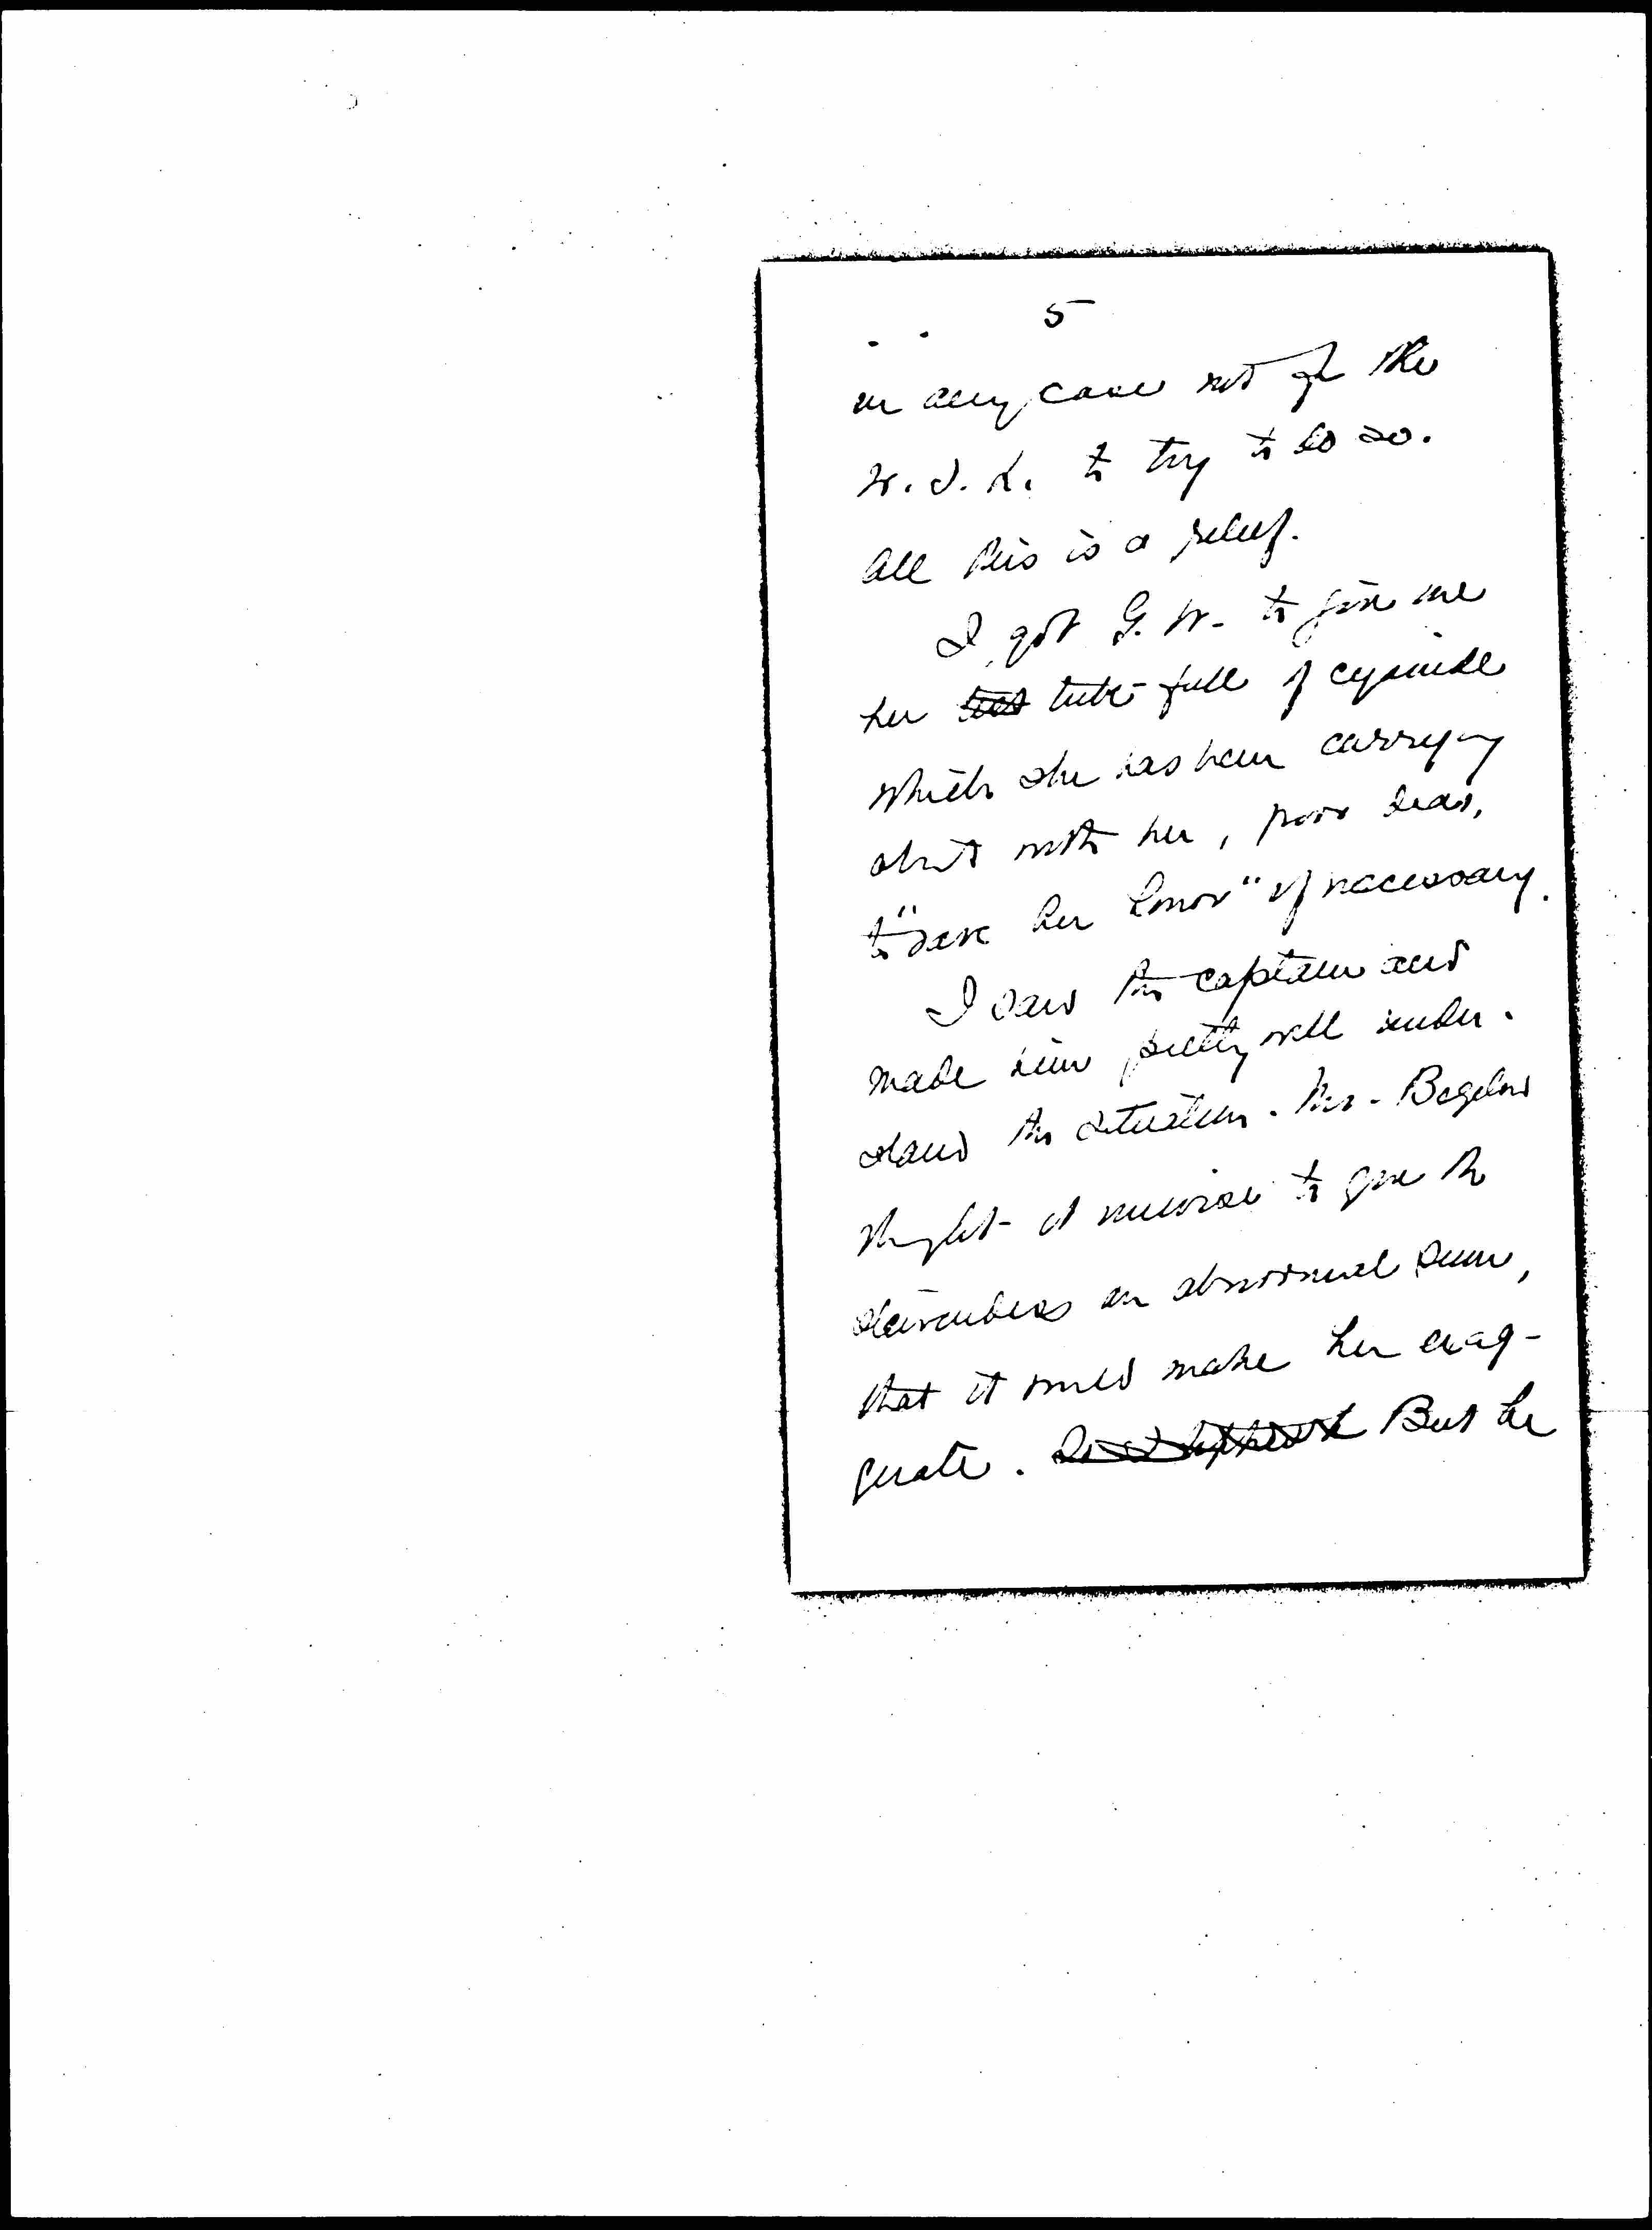 5
in any case not for the
W. I. L. to try to do so.
All this is a relief.
I got G. W. to give me
her test tube full of cyanide
which she has been carrying
about with her, poor dear,
to "save her honor" if necessary.
I saw the captain and
made him pretty well under-
stand the situation. Mr. Bagelow
thought it unwise to give the
stewardess an abnormal sum,
that it would make her exag-
gerate. But he